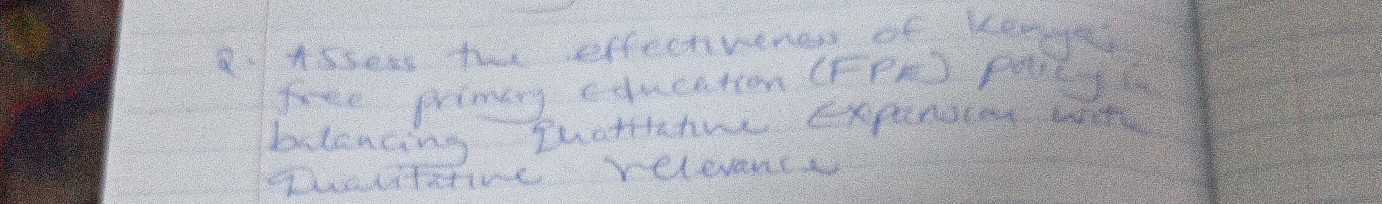 2. Assess the effectiveness of Kenya's
free primary education (FPE) policy in
balancing quantitative expansion with
Qualitative relevance